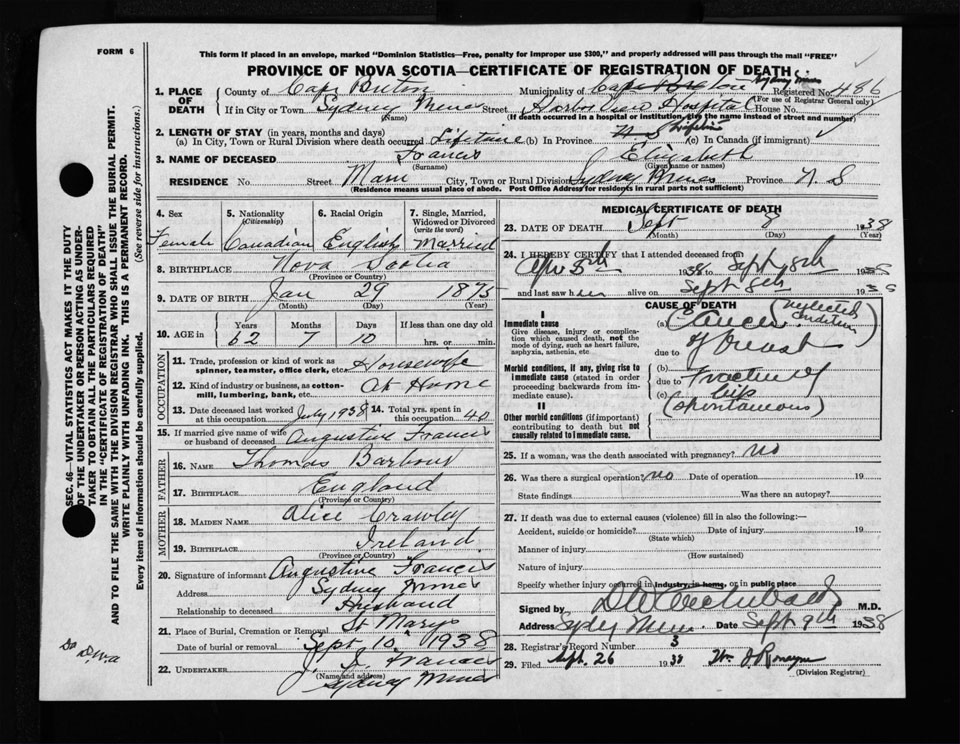 FORM 6
This form if placed in an envelope, marked "Dominion Statistics—Free, penalty for improper use $300," and properly addressed will pass through the mail "FREE"
PROVINCE OF NOVA SCOTIA—CERTIFICATE OF REGISTRATION OF DEATH
1. PLACE OF DEATH
County of Cape Breton Municipality of Cape Breton Sydney Mines Registered No. 486
(For use of Registrar General only)
If in City or Town Sydney Mines Street Harbor View Hospital House No.
(Name) (If death occurred in a hospital or institution, give the name instead of street and number)
2. LENGTH OF STAY (in years, months and days)
(a) In City, Town or Rural Division where death occurred Lifetime (b) In Province N. S Lifetime (c) In Canada (if immigrant)
3. NAME OF DECEASED Francis Elizabeth
(Surname) (Given name or names)
RESIDENCE No. Street Main City, Town or Rural Division Sydney Mines Province N. S
(Residence means usual place of abode. Post Office Address for residents in rural parts not sufficient)
4. Sex 5. Nationality (Citizenship) 6. Racial Origin 7. Single, Married, Widowed or Divorced (write the word)
Female Canadian English Married
8. BIRTHPLACE Nova Scotia
(Province or Country)
9. DATE OF BIRTH Jan 29 1875
(Month) (Day) (Year)
10. AGE in Years Months Days If less than one day old
62 7 10 hrs. or min.
OCCUPATION
11. Trade, profession or kind of work as spinner, teamster, office clerk, etc. Housewife
12. Kind of industry or business, as cotton-mill, lumbering, bank, etc. At Home
13. Date deceased last worked at this occupation July 1938 14. Total yrs. spent in this occupation 40
15. If married give name of wife or husband of deceased Augustine Francis
FATHER
16. NAME Thomas Barbour
17. BIRTHPLACE England
(Province or Country)
MOTHER
18. MAIDEN NAME Alice Crawley
19. BIRTHPLACE Ireland
(Province or Country)
20. Signature of informant Augustine Francis
Address Sydney Mines
Relationship to deceased Husband
21. Place of Burial, Cremation or Removal St Marys
Date of burial or removal Sept 10 1938
22. UNDERTAKER J. J. Francis
(Name and address) Sydney Mines
MEDICAL CERTIFICATE OF DEATH
23. DATE OF DEATH Sept 8 1938
(Month) (Day) (Year)
24. I HEREBY CERTIFY that I attended deceased from
5th 1938 to Sept 8th 1938
and last saw her alive on Sept 8th 1938
CAUSE OF DEATH
I
Immediate cause
Give disease, injury or complication which caused death, not the mode of dying, such as heart failure, asphyxia, asthenia, etc
(a) Cancer (neglected condition)
due to of breast
Morbid conditions, if any, giving rise to immediate cause (stated in order proceeding backwards from immediate).
(b) Fracture of
due to hip
(c) (spontaneous)
II
Other morbid conditions (if important) contributing to death but not causally related to immediate cause.
25. If a woman, was the death associated with pregnancy? No
26. Was there a surgical operation No Date of operation 19
State findings Was there an autopsy?
27. If death was due to external causes (violence) fill in also the following:—
Accident, suicide or homicide? Date of injury 19
(State which)
Manner of injury
(How sustained)
Nature of injury
Specify whether injury occurred in industry, in home, or in public place
Signed by D W Archibald M.D.
Address Sydney Mines Date Sept 9th 1938
28. Registrar's Record Number 3
29. Filed Sept. 26 1938
(Division Registrar)
SEC. 46—VITAL STATISTICS ACT MAKES IT THE DUTY
OF THE UNDERTAKER OR PERSON ACTING AS UNDERTAKER TO OBTAIN ALL THE PARTICULARS REQUIRED
IN THE "CERTIFICATE OF REGISTRATION OF DEATH"
AND TO FILE THE SAME WITH THE DIVISION REGISTRAR WHO SHALL ISSUE THE BURIAL PERMIT.
WRITE PLAINLY WITH UNFADING INK. THIS IS A PERMANENT RECORD.
Every item of information should be carefully supplied. (See reverse side for instructions.)